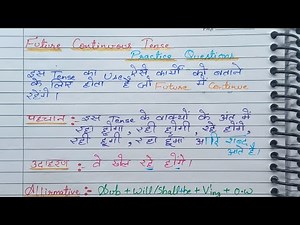 Future Continuous Tense
Practice Questions
इस Tense का Use ऐसे कार्यों को बताने
के लिए होता है जो Future में Continue
रहेंगे।
पहचान :- इस Tense के वाक्यों के अंत में
रहा होगा, रही होगी, रहे होंगे,
रही हूंगी, रहा हूंगा आदि शब्द
आते हैं।
उदाहरण :- वे खेल रहे होंगे।
Affirmative :- Sub + Will/Shall + be + Ving + O.W